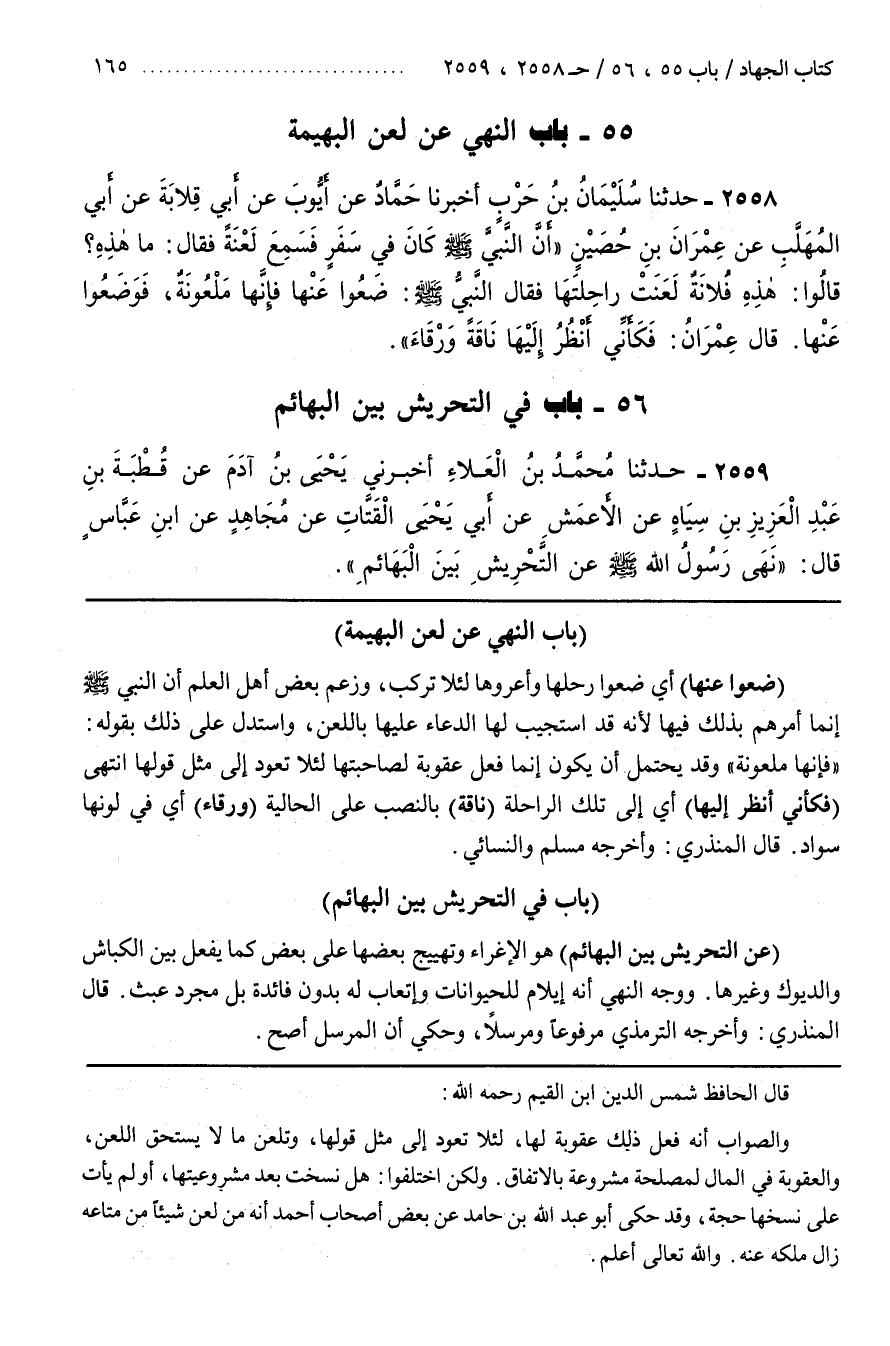 كتاب الجهاد / باب ٥٥ ، ٥٦ / حـ ٢٥٥٨ ، ٢٥٥٩ ................................ ١٦٥
٥٥ ـ باب النهي عن لعن البهيمة
٢٥٥٨ ـ حدثنا سُلَيْمَانُ بنُ حَرْبٍ أخبرنا حَمَّادٌ عن أَيُّوبَ عن أَبي قِلابَةَ عن أَبي
المُهَلَّبِ عن عِمْرَانَ بنِ حُصَيْنٍ «أَنَّ النَّبيَّ ﷺ كَانَ في سَفَرٍ فَسَمِعَ لَعْنَةً فقال: ما هٰذِهِ؟
قالُوا: هٰذِهِ فُلانَةٌ لَعَنَتْ راحِلتَهَا فقال النَّبيُّ ﷺ: ضَعُوا عَنْها فإنَّها مَلْعُونَةٌ، فَوَضَعُوا
عَنْها. قال عِمْرَانُ: فَكَأَنِّي أَنْظُرُ إِلَيْهَا نَاقَةً وَرْقَاءَ».
٥٦ ـ باب في التحريش بين البهائم
٢٥٥٩ ـ حـدثنا مُحمَّـدُ بنُ الْعَـلاءِ أخبـرني يَحْيَى بنُ آدَمَ عن قُـطْبَـةَ بنِ
عَبْدِ الْعَزِيزِ بنِ سِيَاهٍ عن الأَعمَشِ عن أَبي يَحْيَى الْقَتَّاتِ عن مُجَاهِدٍ عن ابنِ عَبَّاسٍ
قال: «نَهَى رَسُولُ الله ﷺ عن التَّحْرِيشِ بَينَ الْبَهَائمِ».
(باب النهي عن لعن البهيمة)
(ضعوا عنها) أي ضعوا رحلها وأعروها لئلا تركب، وزعم بعض أهل العلم أن النبي ﷺ
إنما أمرهم بذلك فيها لأنه قد استجيب لها الدعاء عليها باللعن، واستدل على ذلك بقوله:
«فإنها ملعونة» وقد يحتمل أن يكون إنما فعل عقوبة لصاحبتها لئلا تعود إلى مثل قولها انتهى
(فكأني أنظر إليها) أي إلى تلك الراحلة (ناقة) بالنصب على الحالية (ورقاء) أي في لونها
سواد. قال المنذري: وأخرجه مسلم والنسائي.
(باب في التحريش بين البهائم)
(عن التحريش بين البهائم) هو الإغراء وتهييج بعضها على بعض كما يفعل بين الكباش
والديوك وغيرها. ووجه النهي أنه إيلام للحيوانات وإتعاب له بدون فائدة بل مجرد عبث. قال
المنذري: وأخرجه الترمذي مرفوعاً ومرسلًا، وحكي أن المرسل أصح.
قال الحافظ شمس الدين ابن القيم رحمه الله:
والصواب أنه فعل ذلك عقوبة لها، لئلا تعود إلى مثل قولها، وتلعن ما لا يستحق اللعن،
والعقوبة في المال لمصلحة مشروعة بالاتفاق. ولكن اختلفوا: هل نسخت بعد مشروعيتها، أو لم يأت
على نسخها حجة، وقد حكى أبو عبد الله بن حامد عن بعض أصحاب أحمد أنه من لعن شيئاً من متاعه
زال ملكه عنه. والله تعالى أعلم.